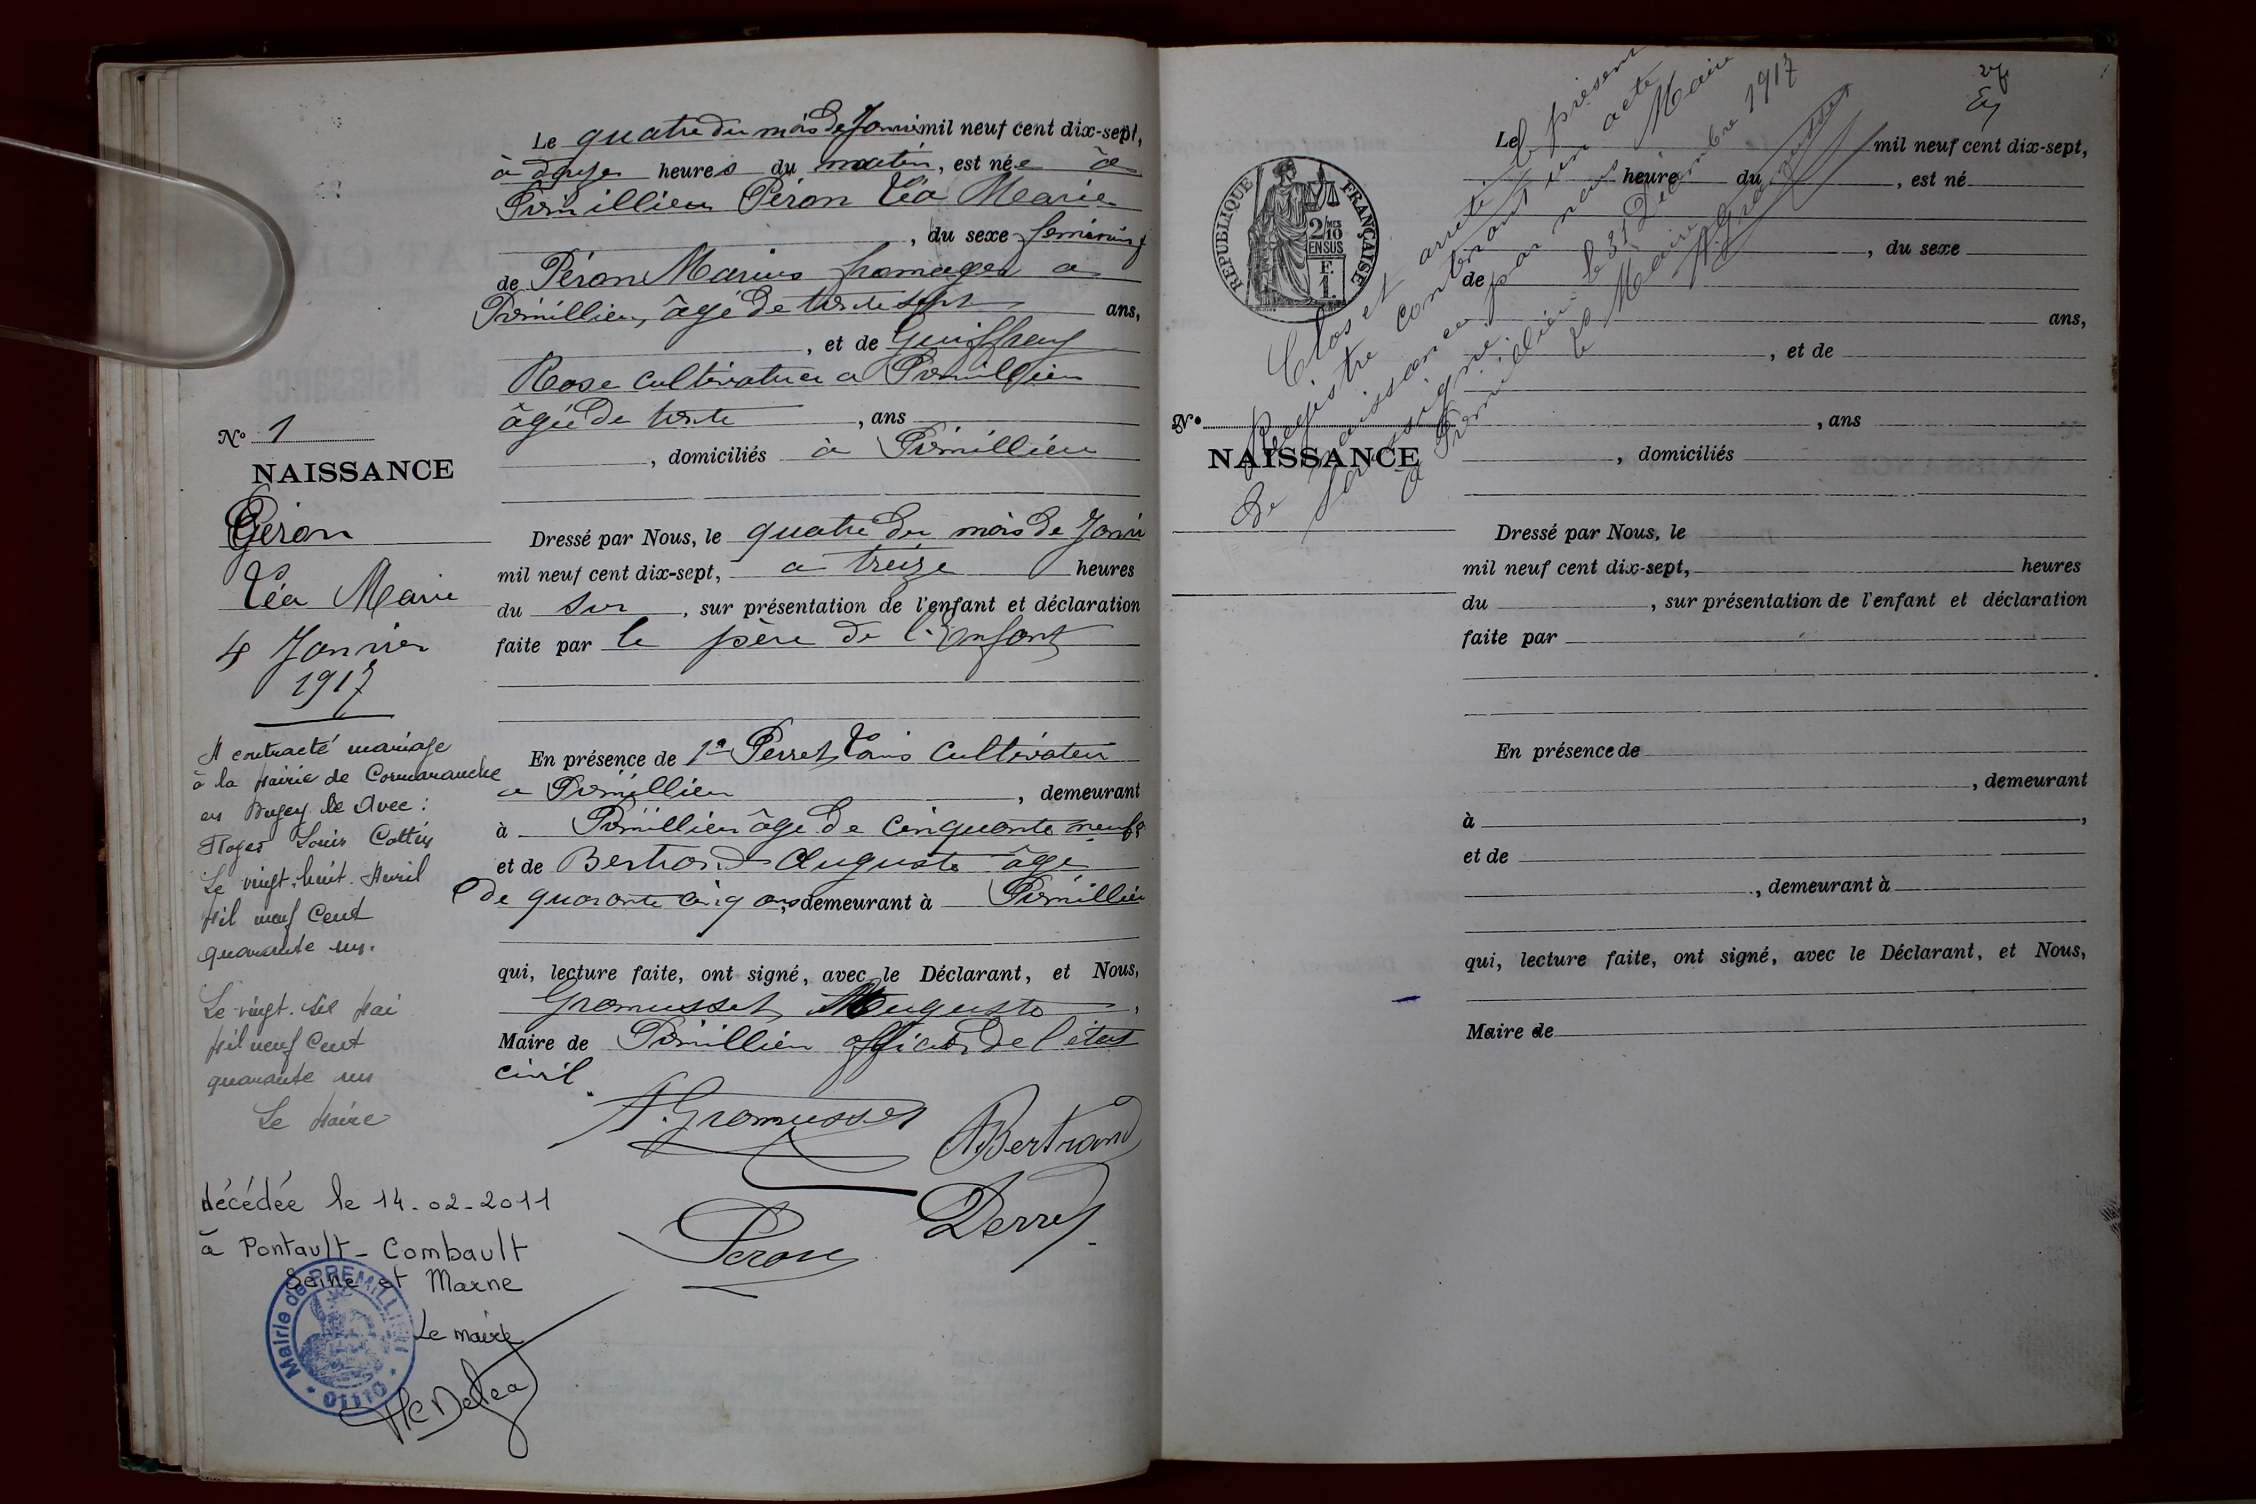 Le quatre du mois de Janvier mil neuf cent dix-sept,
à douze heures du matin, est née à
Prémillieu Péron Léa Marie
, du sexe féminin
de Péron Marius fromager a
Prémillieu, âgé de trente sept ans,
, et de Guiffray
Rose cultivatrice a Prémillieu
âgée de trente , ans
, domiciliés à Prémillieu
Nº 1
NAISSANCE
Péron
Léa Marie
4 Janvier
1917
Dressé par Nous, le quatre du mois de Janvier
mil neuf cent dix-sept, a treize heures
du soir , sur présentation de l'enfant et déclaration
faite par le père de l'Enfant
A contracté mariage
à la Mairie de Cormaranche
en Bugey le Avec :
Roger Louis Cottin
Le vingt-huit Avril
Mil neuf Cent
quarante un.
Le vingt-six Mai
Mil neuf Cent
quarante un
Le Maire
En présence de 1º Perret Louis cultivateur
a Prémillieu , demeurant
à Prémillieu âgé de cinquante neuf
et de Bertrand Auguste âgé
de quarante cinq ans, demeurant à Prémillieu
qui, lecture faite, ont signé, avec le Déclarant, et Nous,
Gromusset Auguste ,
Maire de Prémillieu officier de l'état
civil
A. Gromusset
A Bertrand
Peron
Perret
décédée le 14-02-2011
à Pontault-Combault
Seine et Marne
Le maire
Mairie de PREMILLIEU
01110
27
Clos et arrêté le présent
Registre contenant un acte
de naissance par nous Maire
soussigné.
a Prémillieu le 31 Décembre 1917
le Maire
A Gromusset
REPUBLIQUE FRANÇAISE
2/10
EN SUS
F.
1.
Le mil neuf cent dix-sept,
heure du , est né
, du sexe
de
ans,
, et de
, ans
, domiciliés
Nº
NAISSANCE
Dressé par Nous, le
mil neuf cent dix-sept, heures
du , sur présentation de l'enfant et déclaration
faite par
En présence de
, demeurant
à ,
et de
, demeurant à
qui, lecture faite, ont signé, avec le Déclarant, et Nous,
Maire de